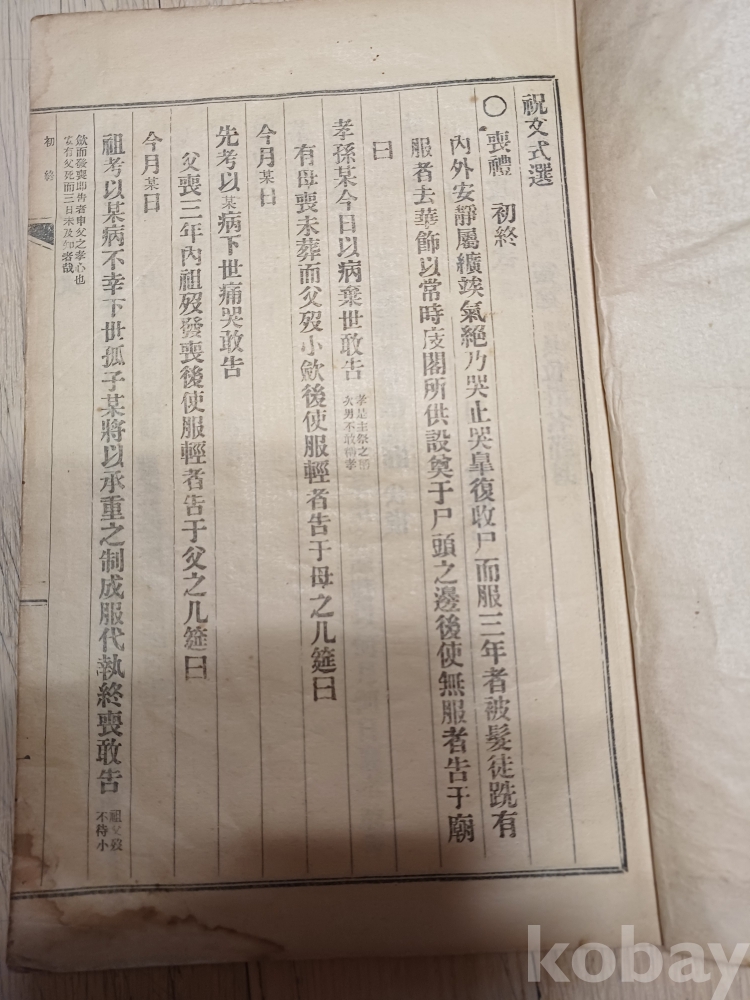 祝文式選
○喪禮 初終
內外安靜屬纊俟氣絶乃哭止哭皐復收尸而服三年者被髮徒跣有
服者去華飾以常時庋閣所供設奠于尸頭之邊後使無服者告于廟
曰
孝孫某今日以病棄世敢告
孝是主祭之稱
次男不敢稱孝
有母喪未葬而父歿小斂後使服輕者告于母之几筵曰
今月某日
先考以某病下世痛哭敢告
父喪三年內祖歿發喪後使服輕者告于父之几筵曰
今月某日
祖考以某病不幸下世孤子某將以承重之制成服代執終喪敢告
祖父歿
不待小
斂而發喪卽告者申父之孝心也
有父死而三日未及知者哉
初終
一
kobay